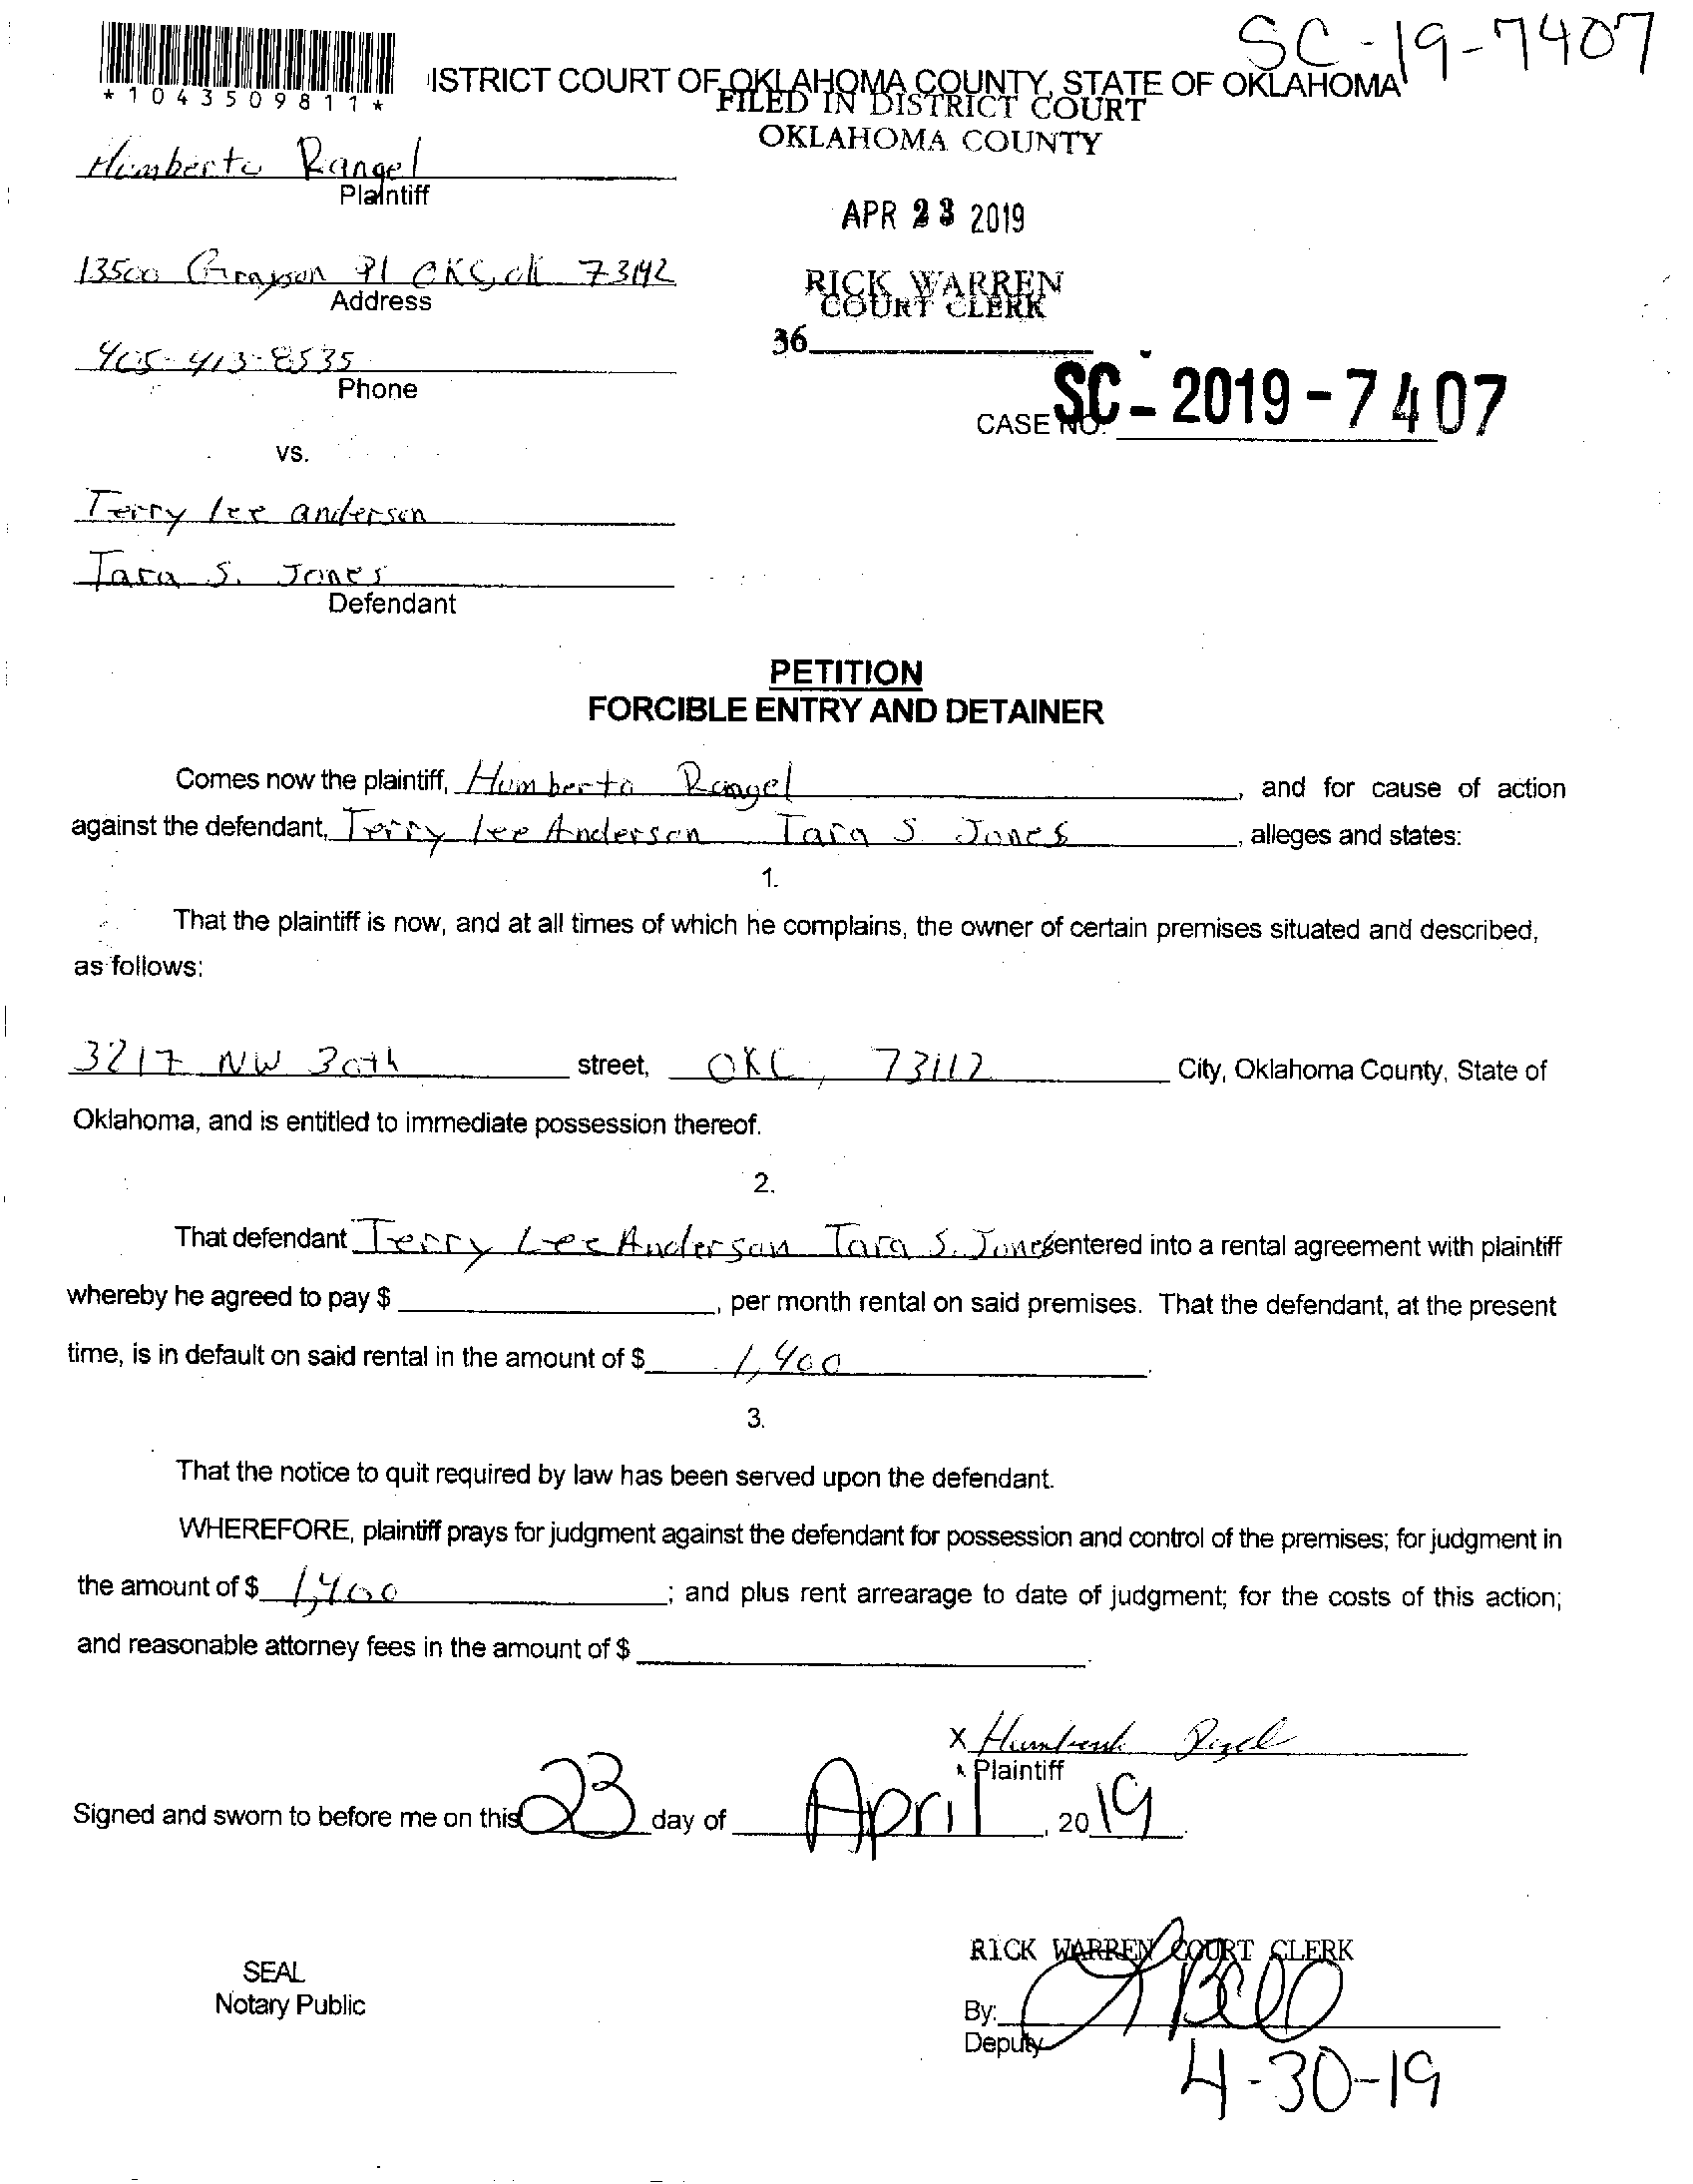 SC-19-7407
*1043509811*
ISTRICT COURT OF OKLAHOMA COUNTY, STATE OF OKLAHOMA
FILED IN DISTRICT COURT
OKLAHOMA COUNTY
Humberto Rangel
Plaintiff
APR 23 2019
13500 Grayson Pl OKC, ok 73142
Address
RICK WARREN
COURT CLERK
36
405-413-8535
Phone
CASE NO. SC-2019-7407
vs.
Terry lee anderson
Tara S. Jones
Defendant
PETITION
FORCIBLE ENTRY AND DETAINER
Comes now the plaintiff, Humberto Rangel, and for cause of action
against the defendant, Terry lee Anderson Tara S Jones, alleges and states:
1.
That the plaintiff is now, and at all times of which he complains, the owner of certain premises situated and described,
as follows:
3217 NW 30th street, OKC, 73112 City, Oklahoma County, State of
Oklahoma, and is entitled to immediate possession thereof.
2.
That defendant Terry Lee Anderson Tara S. Jones entered into a rental agreement with plaintiff
whereby he agreed to pay $ , per month rental on said premises. That the defendant, at the present
time, is in default on said rental in the amount of $ 1,400.
3.
That the notice to quit required by law has been served upon the defendant.
WHEREFORE, plaintiff prays for judgment against the defendant for possession and control of the premises; for judgment in
the amount of $ 1,400; and plus rent arrearage to date of judgment; for the costs of this action;
and reasonable attorney fees in the amount of $ .
X Humberto Rangel
Plaintiff
Signed and sworn to before me on this 23 day of April, 2019.
RICK WARREN COURT CLERK
SEAL
Notary Public
By:
Deputy
4-30-19